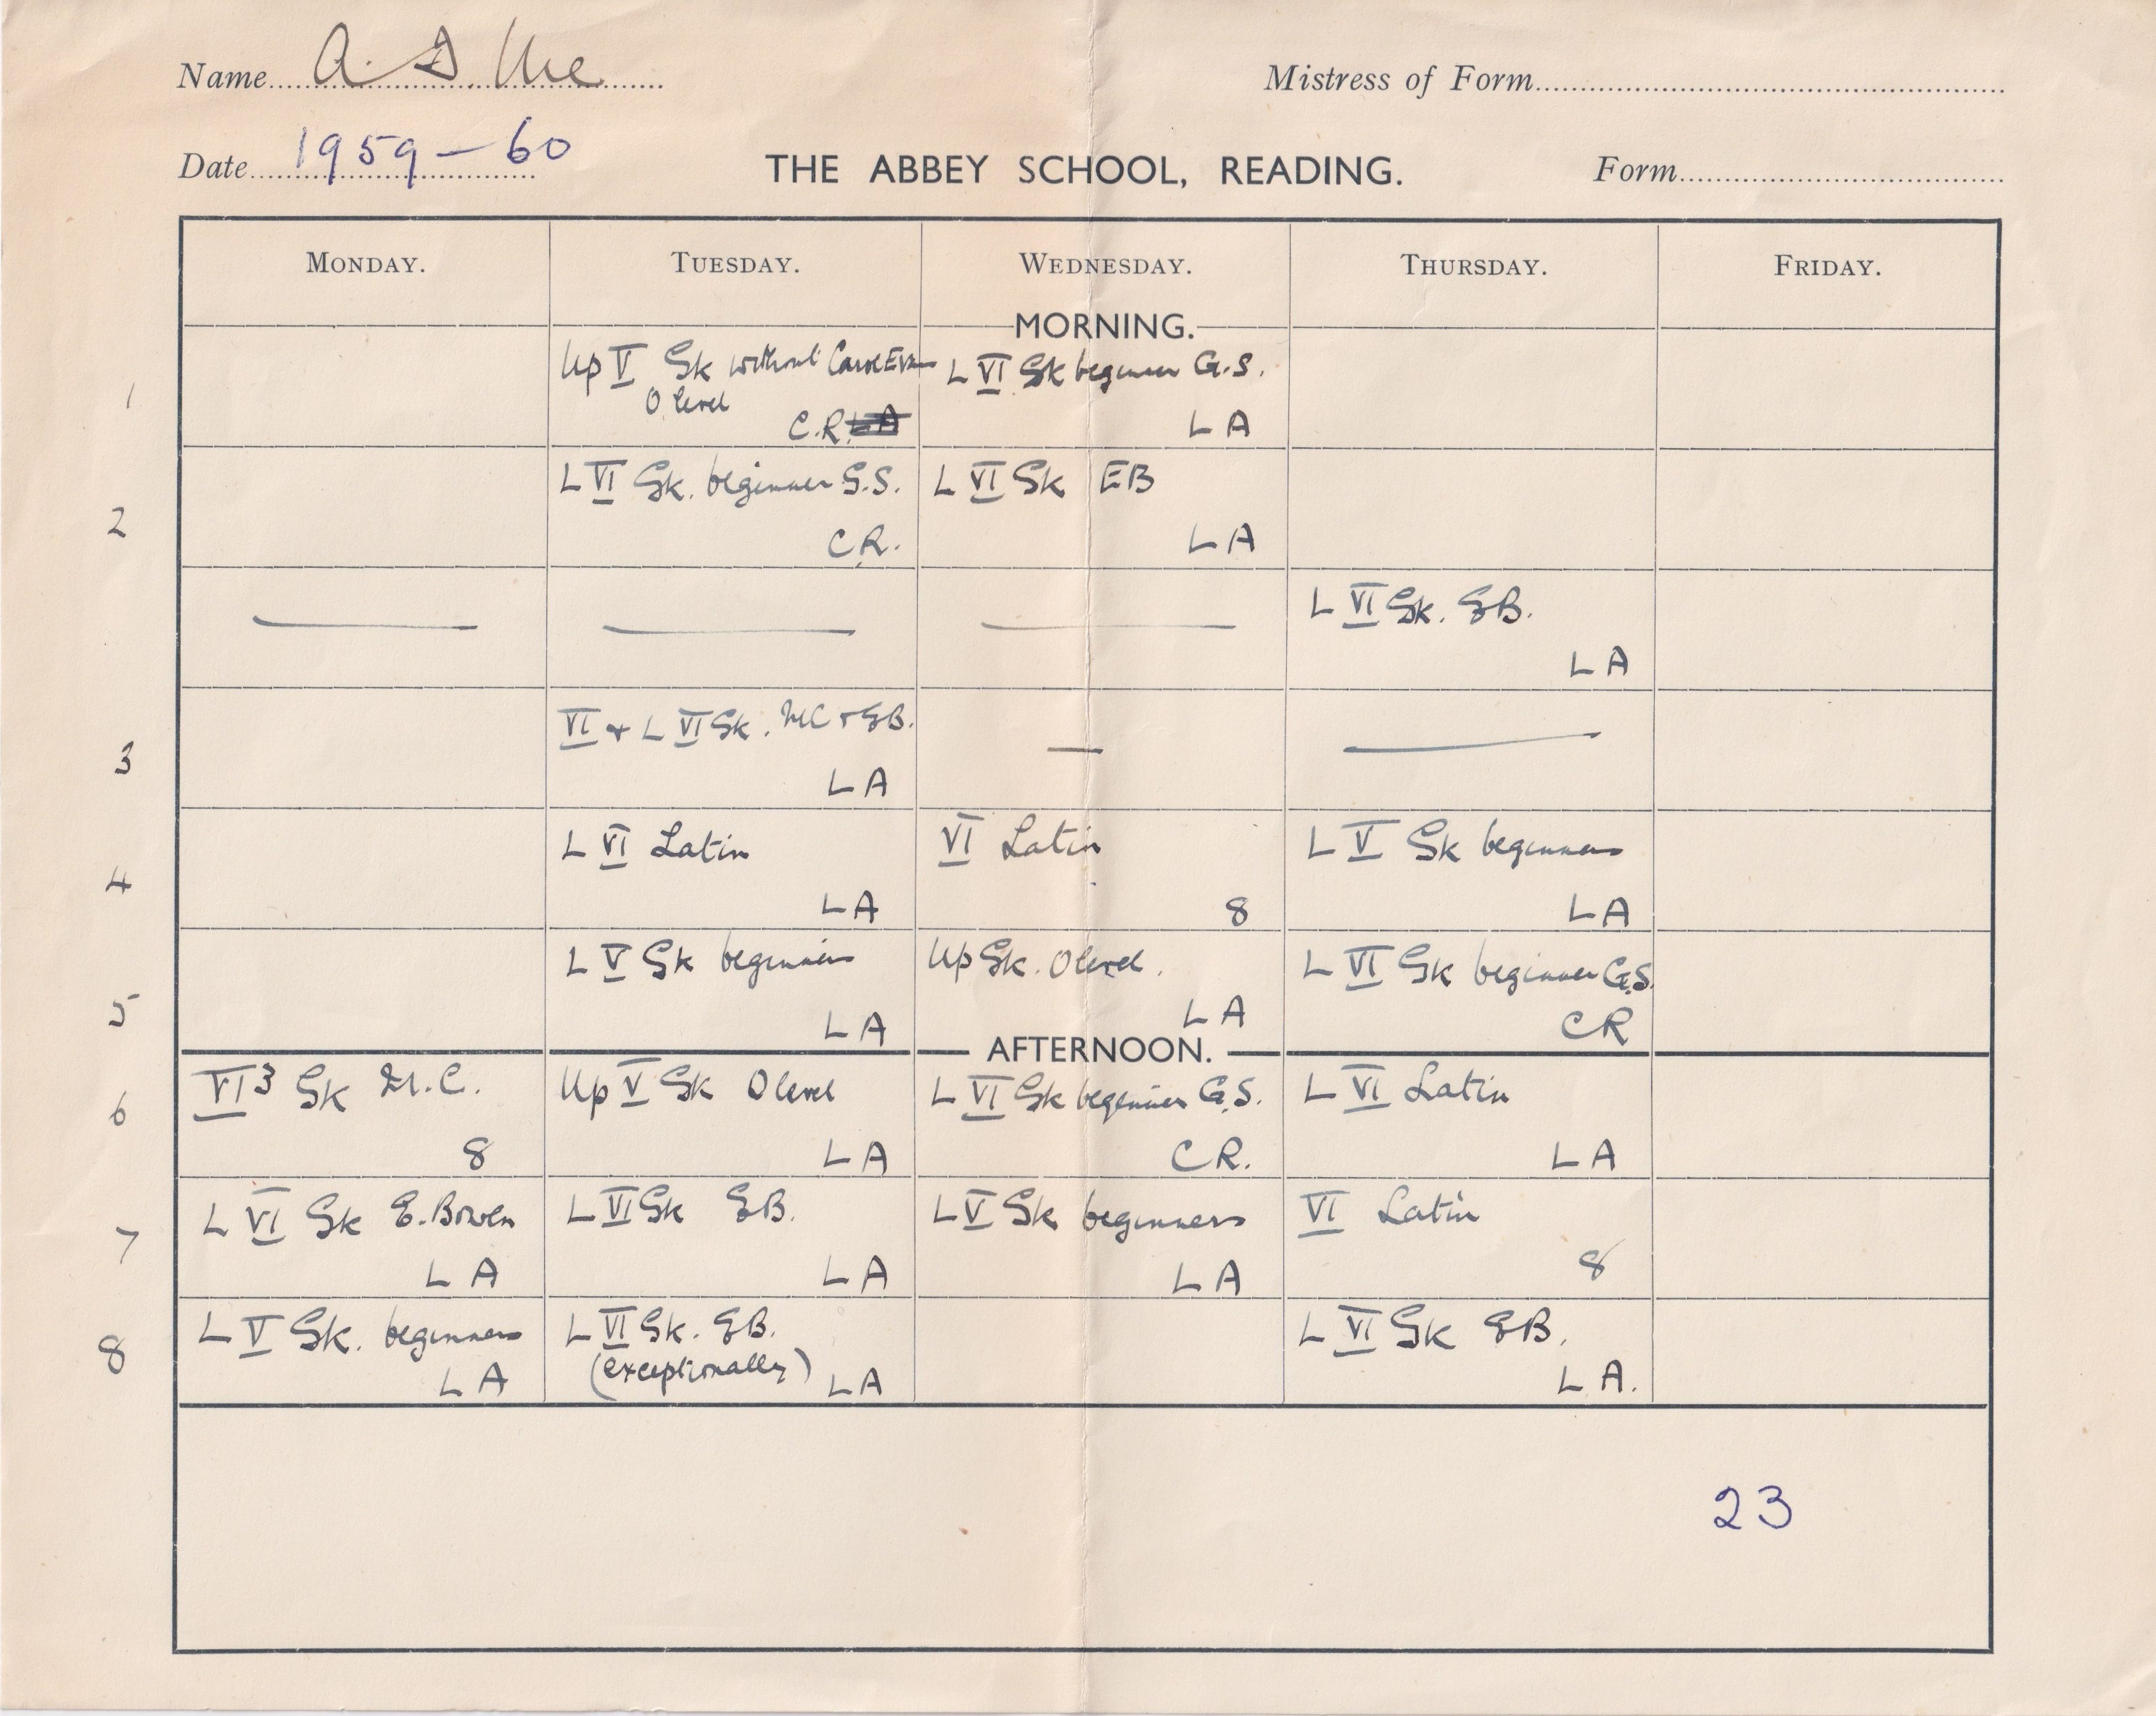 Name A. D. Ure
Mistress of Form
Date 1959 – 60
THE ABBEY SCHOOL, READING.
Form
MONDAY. TUESDAY. WEDNESDAY. THURSDAY. FRIDAY.
MORNING.
1
Up V Gk without Carol Evans
O level
C.R. LA
L VI Gk beginner G.S.
L A
2
L VI Gk. beginner G.S.
C.R.
L VI Gk EB
L A
L VI Gk. EB.
L A
3
VI + L VI Gk. M.C + EB.
L A
4
L VI Latin
L A
VI Latin
8
L V Gk beginners
L A
5
L V Gk beginners
L A
Up Gk. O level.
L A
L VI Gk beginner G.S.
CR
AFTERNOON.
6
VI³ Gk M.C.
8
Up V Gk O level
L A
L VI Gk beginner G.S.
C R.
L VI Latin
L A
7
L VI Gk E. Bowen
L A
L VI Gk EB.
L A
L V Gk beginners
L A
VI Latin
8
8
L V Gk. beginners
L A
L VI Gk. EB.
(exceptionally) L A
L VI Gk EB.
L A.
23